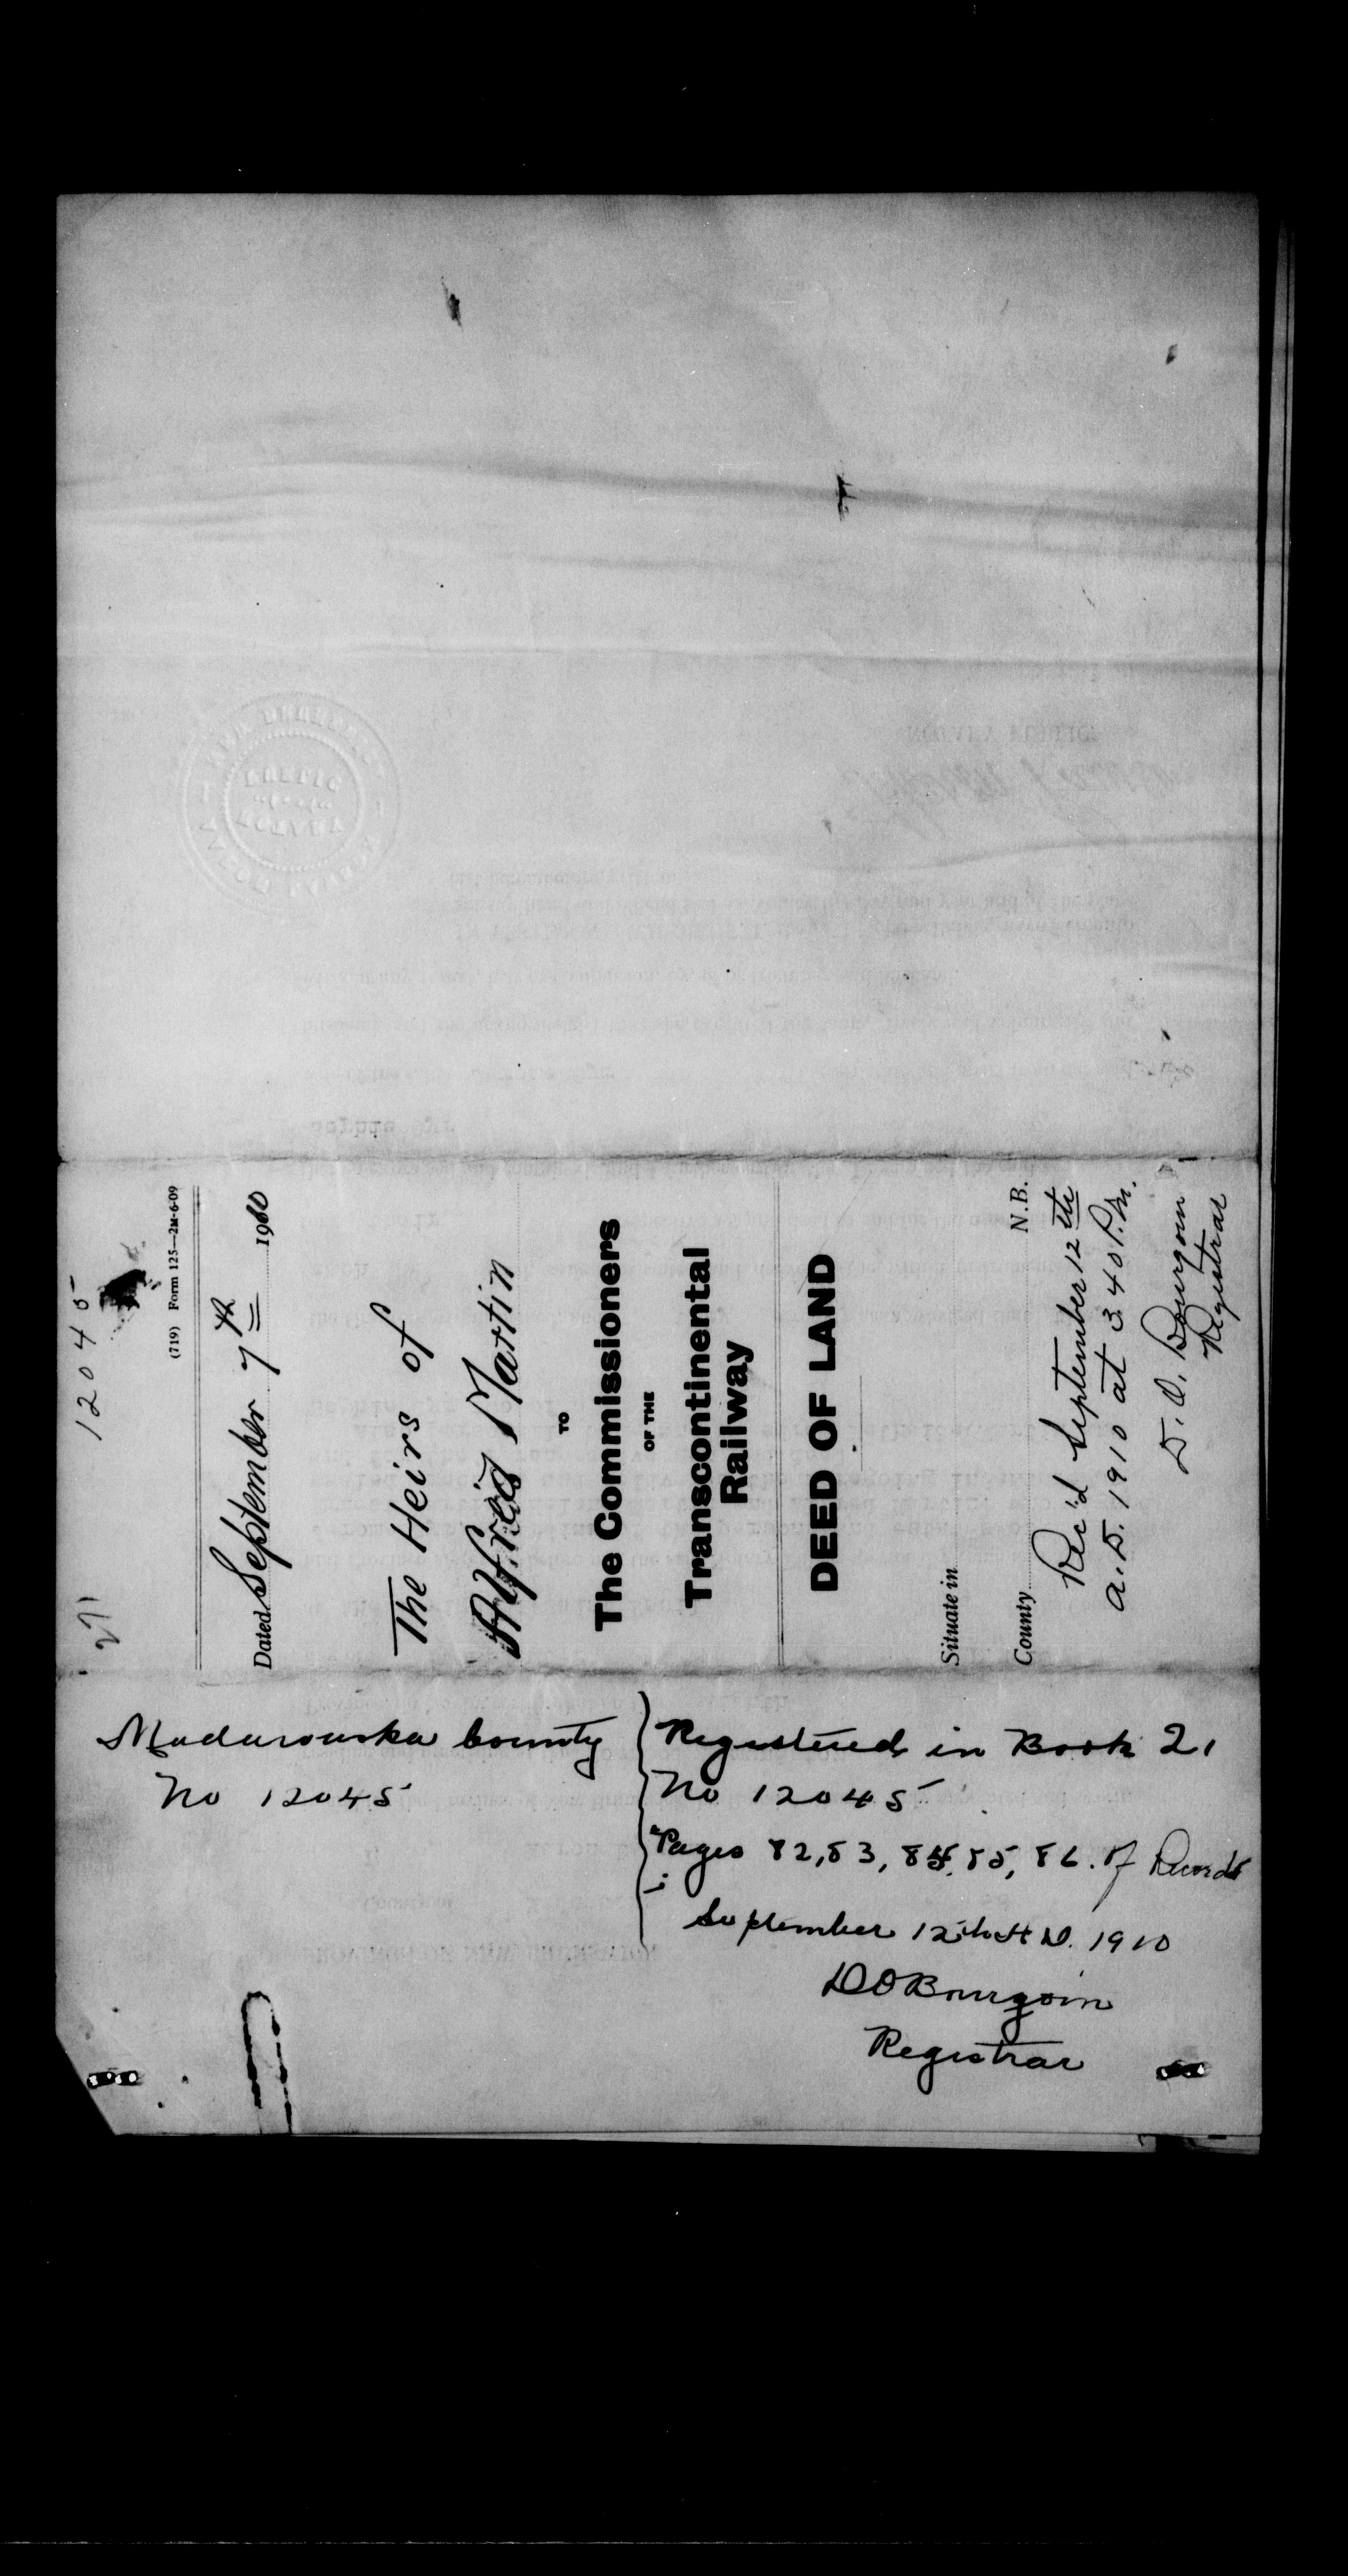 12045
(719) Form 125—2M-6-09
Dated September 7th 1910
The Heirs of
Alfred Martin
TO
The Commissioners
OF THE
Transcontinental
Railway
DEED OF LAND
Situate in
County N.B.
Rec'd September 12th
A.D. 1910 at 3.40 P.M.
D. O. Bourgoin
Registrar
Madawaska County
No 12045
Registered in Book 21
No 12045
Pages 82, 83, 84, 85, 86. of Records
September 12th A D. 1910
D O Bourgoin
Registrar